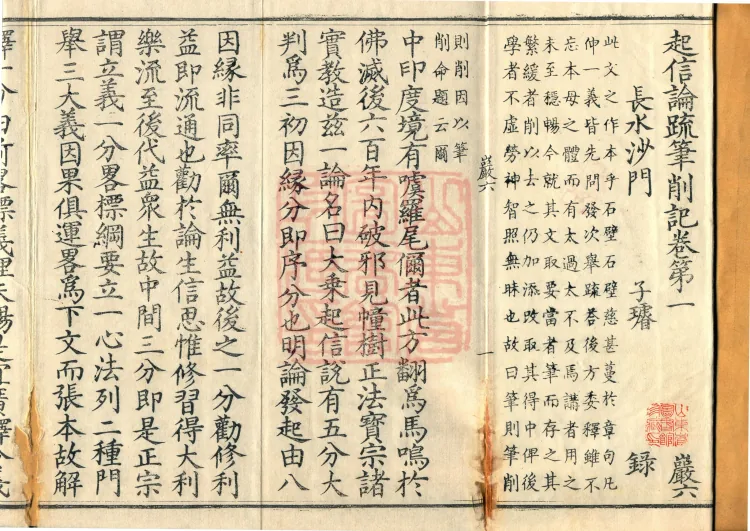 起信論疏筆削記卷第一
巖六
長水沙門 子璿 錄
此文之作本乎石壁石壁慈甚蔓於章句凡
伸一義皆先問發次舉疏答後方委釋雖不
忘本母之體而有太過太不及焉講者用之
未至穩暢今就其文取要當者筆而存之其
繁緩者削以去之仍加添改取其得中俾後
學者不虛勞神智照無昧也故曰筆則筆削
巖六
一
則削因以筆
削命題云爾
中印度境有嚘羅尾儞者此方翻爲馬鳴於
佛滅後六百年內破邪見幢樹正法寶宗諸
實教造茲一論名曰大乘起信說有五分大
判爲三初因緣分即序分也明論發起由八
因緣非同率爾無利益故後之一分勸修利
益即流通也勸於論生信思惟修習得大利
樂流至後代益衆生故中間三分即是正宗
謂立義一分畧標綱要立一心法列二種門
舉三大義因果俱運畧爲下文而張本故解
釋一分由前畧標義理未暢